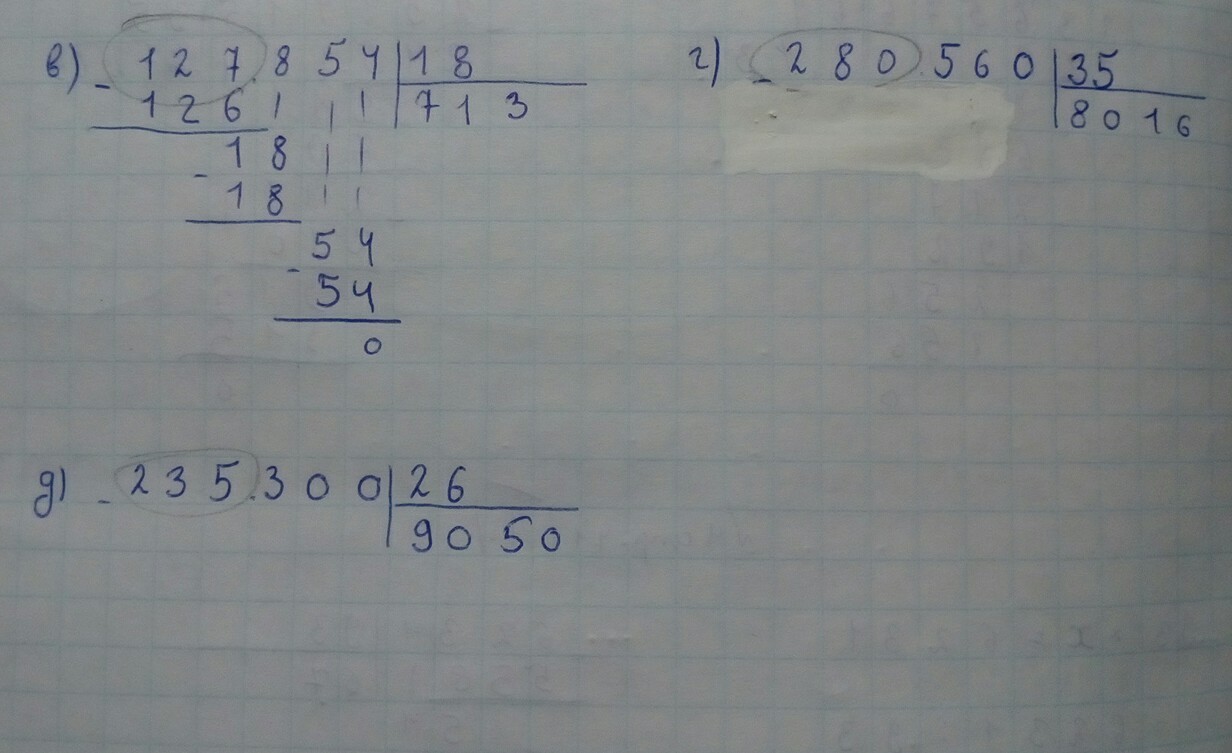 в) - 127.854 | 18
126 | 713
- 18
18
- 54
54
0
г) - 280.560 | 35
8016
д) - 235.300 | 26
9050